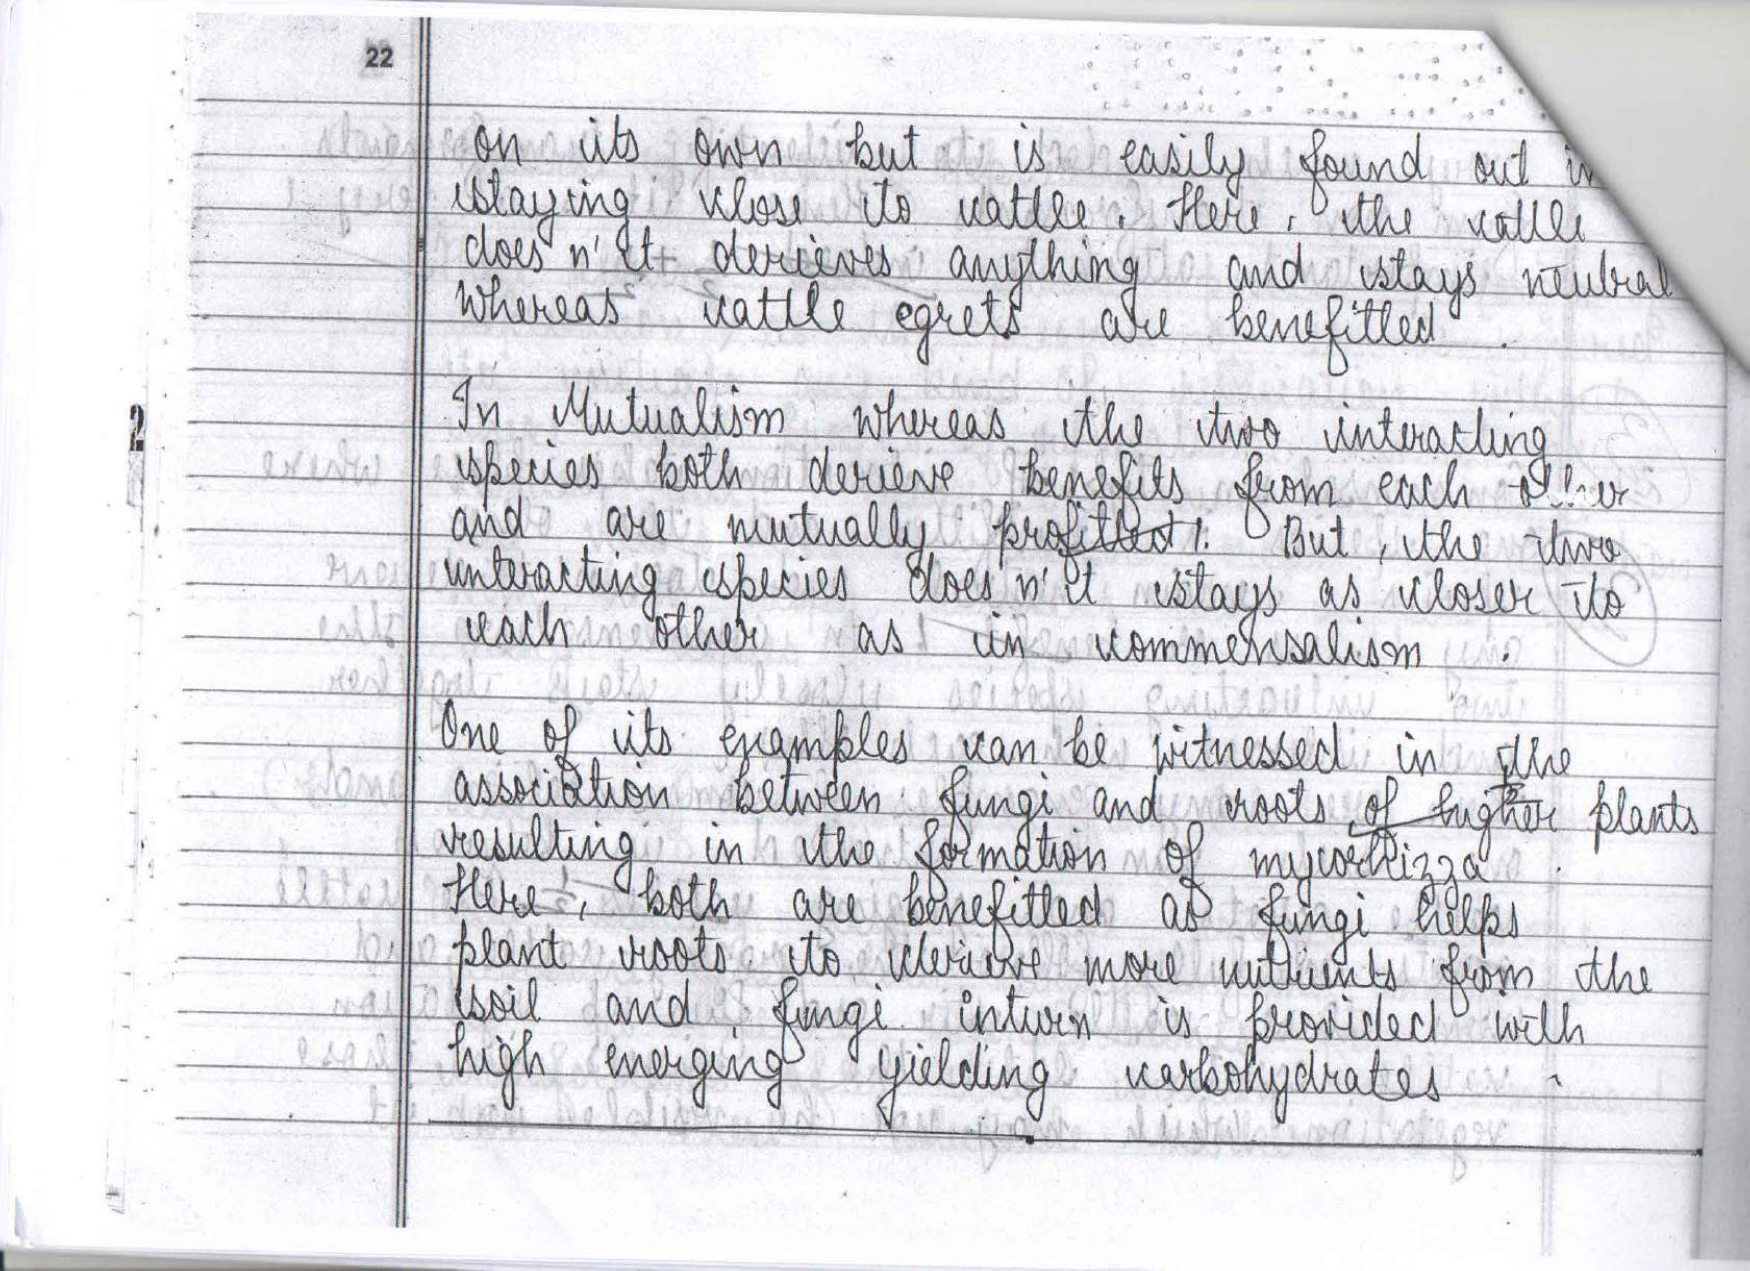 22
on its own but is easily found out in
staying close to cattle. Here, the cattle
does n't derieves anything and stays neutral
whereas cattle egrets are benefitted.
In Mutualism whereas the two interacting
species both derieve benefits from each other
and are mutually profitted. But, the two
interacting species does n't stays as closer to
each other as in commensalism.
One of its examples can be witnessed in the
association between fungi and roots of higher plants
resulting in the formation of mycorhizza.
Here, both are benefitted as fungi helps
plant roots to derieve more nutrients from the
soil and fungi inturn is provided with
high energing yielding carbohydrates.